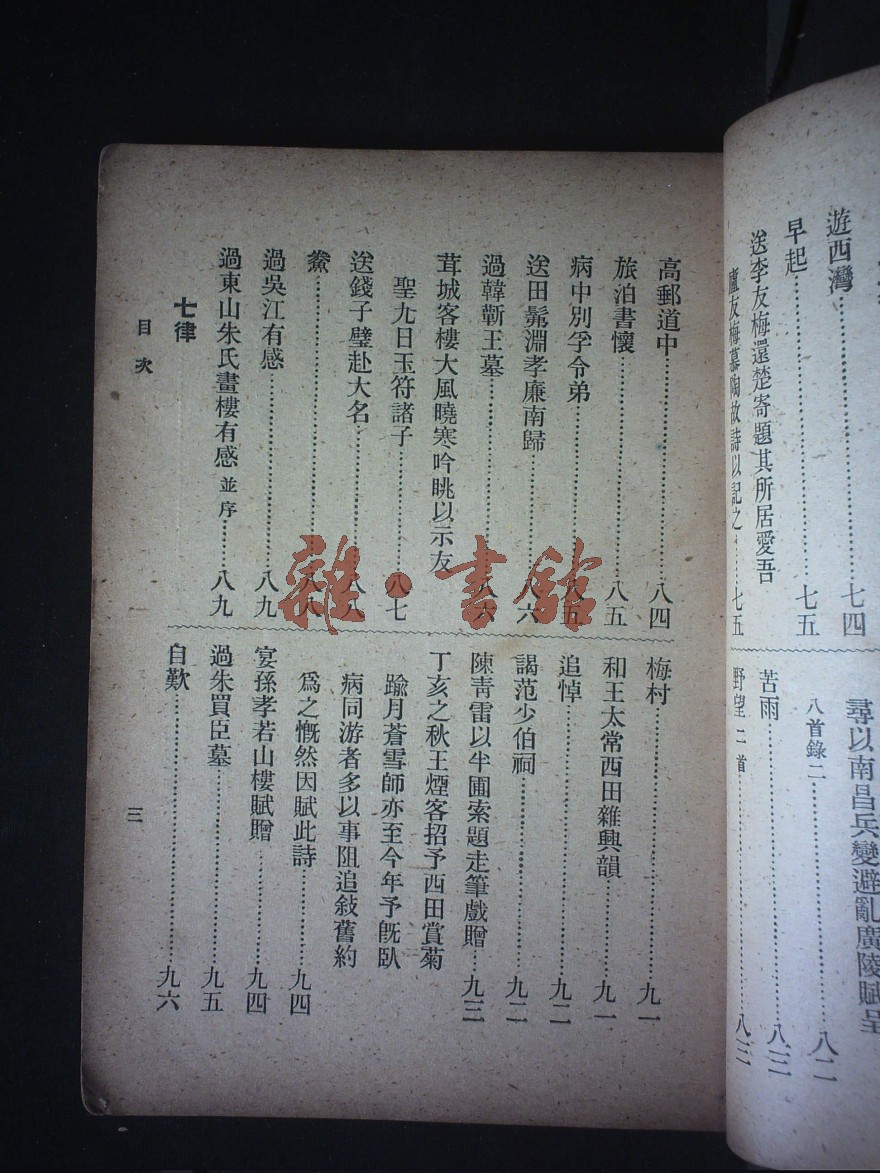 遊西灣……七四
早起……七五
送李友梅還楚寄題其所居愛吾
廬友梅慕陶故詩以記之……七五
尋以南昌兵變避亂廣陵賦呈
八首錄二……八二
苦雨……八三
野望 二首……八三
高郵道中……八四
旅泊書懷……八五
病中別孚令弟……八五
送田髴淵孝廉南歸……八六
過韓蘄王墓……八六
茸城客樓大風曉寒吟眺以示友
聖九日玉符諸子……八七
送錢子璧赴大名……八八
鯗……八八
過吳江有感……八九
過東山朱氏畫樓有感 並序……八九
七律
梅村……九一
和王太常西田雜興韻……九一
追悼……九二
謁范少伯祠……九二
陳青雷以半圃索題走筆戲贈……九三
丁亥之秋王煙客招予西田賞菊
踰月蒼雪師亦至今年予旣臥
病同游者多以事阻追敍舊約
爲之慨然因賦此詩……九四
宴孫孝若山樓賦贈……九四
過朱買臣墓……九五
自歎……九六
目次
三
雜·書館